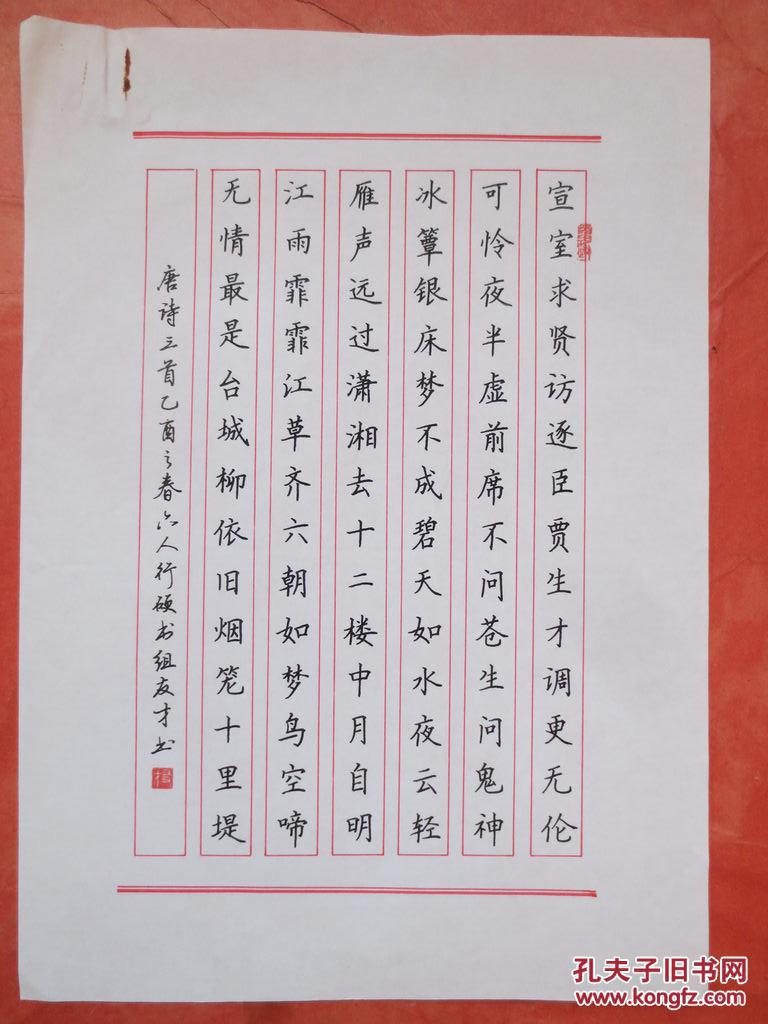 宣室求贤访逐臣贾生才调更无伦
可怜夜半虚前席不问苍生问鬼神
冰簟银床梦不成碧天如水夜云轻
雁声远过潇湘去十二楼中月自明
江雨霏霏江草齐六朝如梦鸟空啼
无情最是台城柳依旧烟笼十里堤
唐诗三首乙酉之春六人行硬书组友才书
孔夫子旧书网
www.kongfz.com